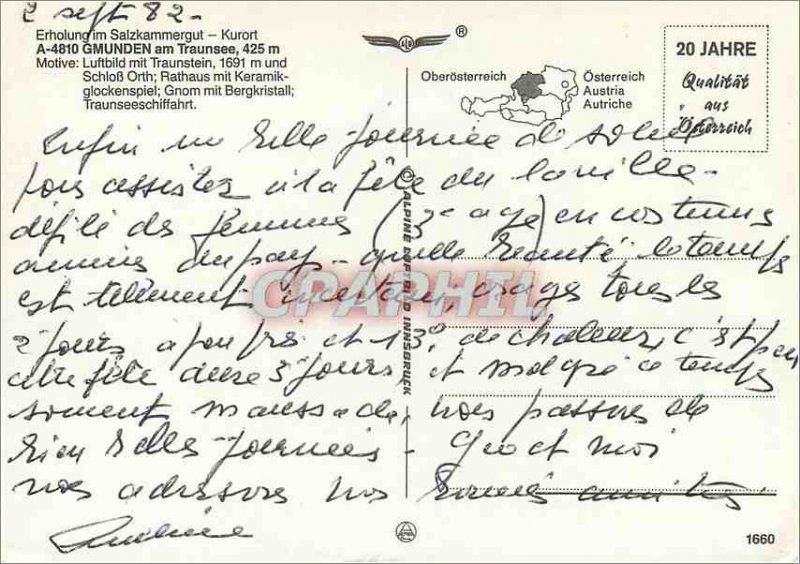 2 sept 82-
Erholung im Salzkammergut – Kurort
A-4810 GMUNDEN am Traunsee, 425 m
Motive: Luftbild mit Traunstein, 1691 m und
Schloß Orth; Rathaus mit Keramik-
glockenspiel; Gnom mit Bergkristall;
Traunseeschiffahrt.
®
Oberösterreich
Österreich
Austria
Autriche
20 JAHRE
Qualität
aus
Österreich
Enfin une belle journée de soleil
pour assister à la fête de la ville-
défilé des femmes (3e age) en costumes
du pays - quelle beauté. le temps
est tellement incertain, orages tous les
2 jours à peu près et 13° de chaleur, c'est peu
cette fête dure 3 jours et malgré ce temps
maussade, nous passons de
bien belles journées - Geo et moi
nous adressons nos bonnes amitiés.
CPAPHIL
ALPINE LUFTBILD INNSBRUCK
1660